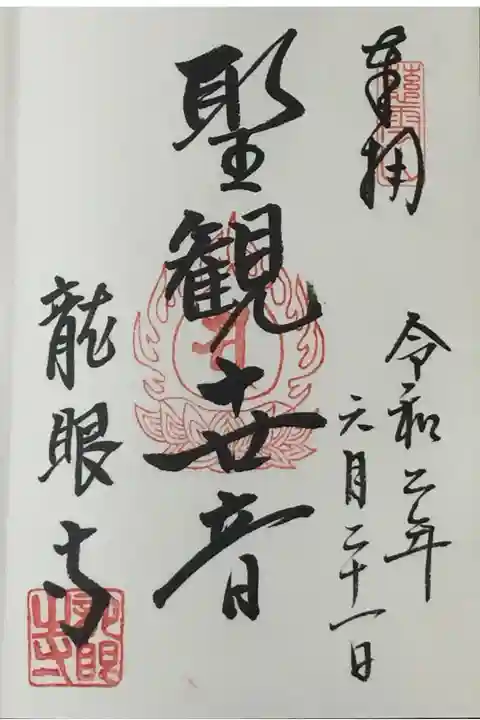 奉拝
令和二年
六月二十一日
聖観世音
龍眼寺
龍眼之寺